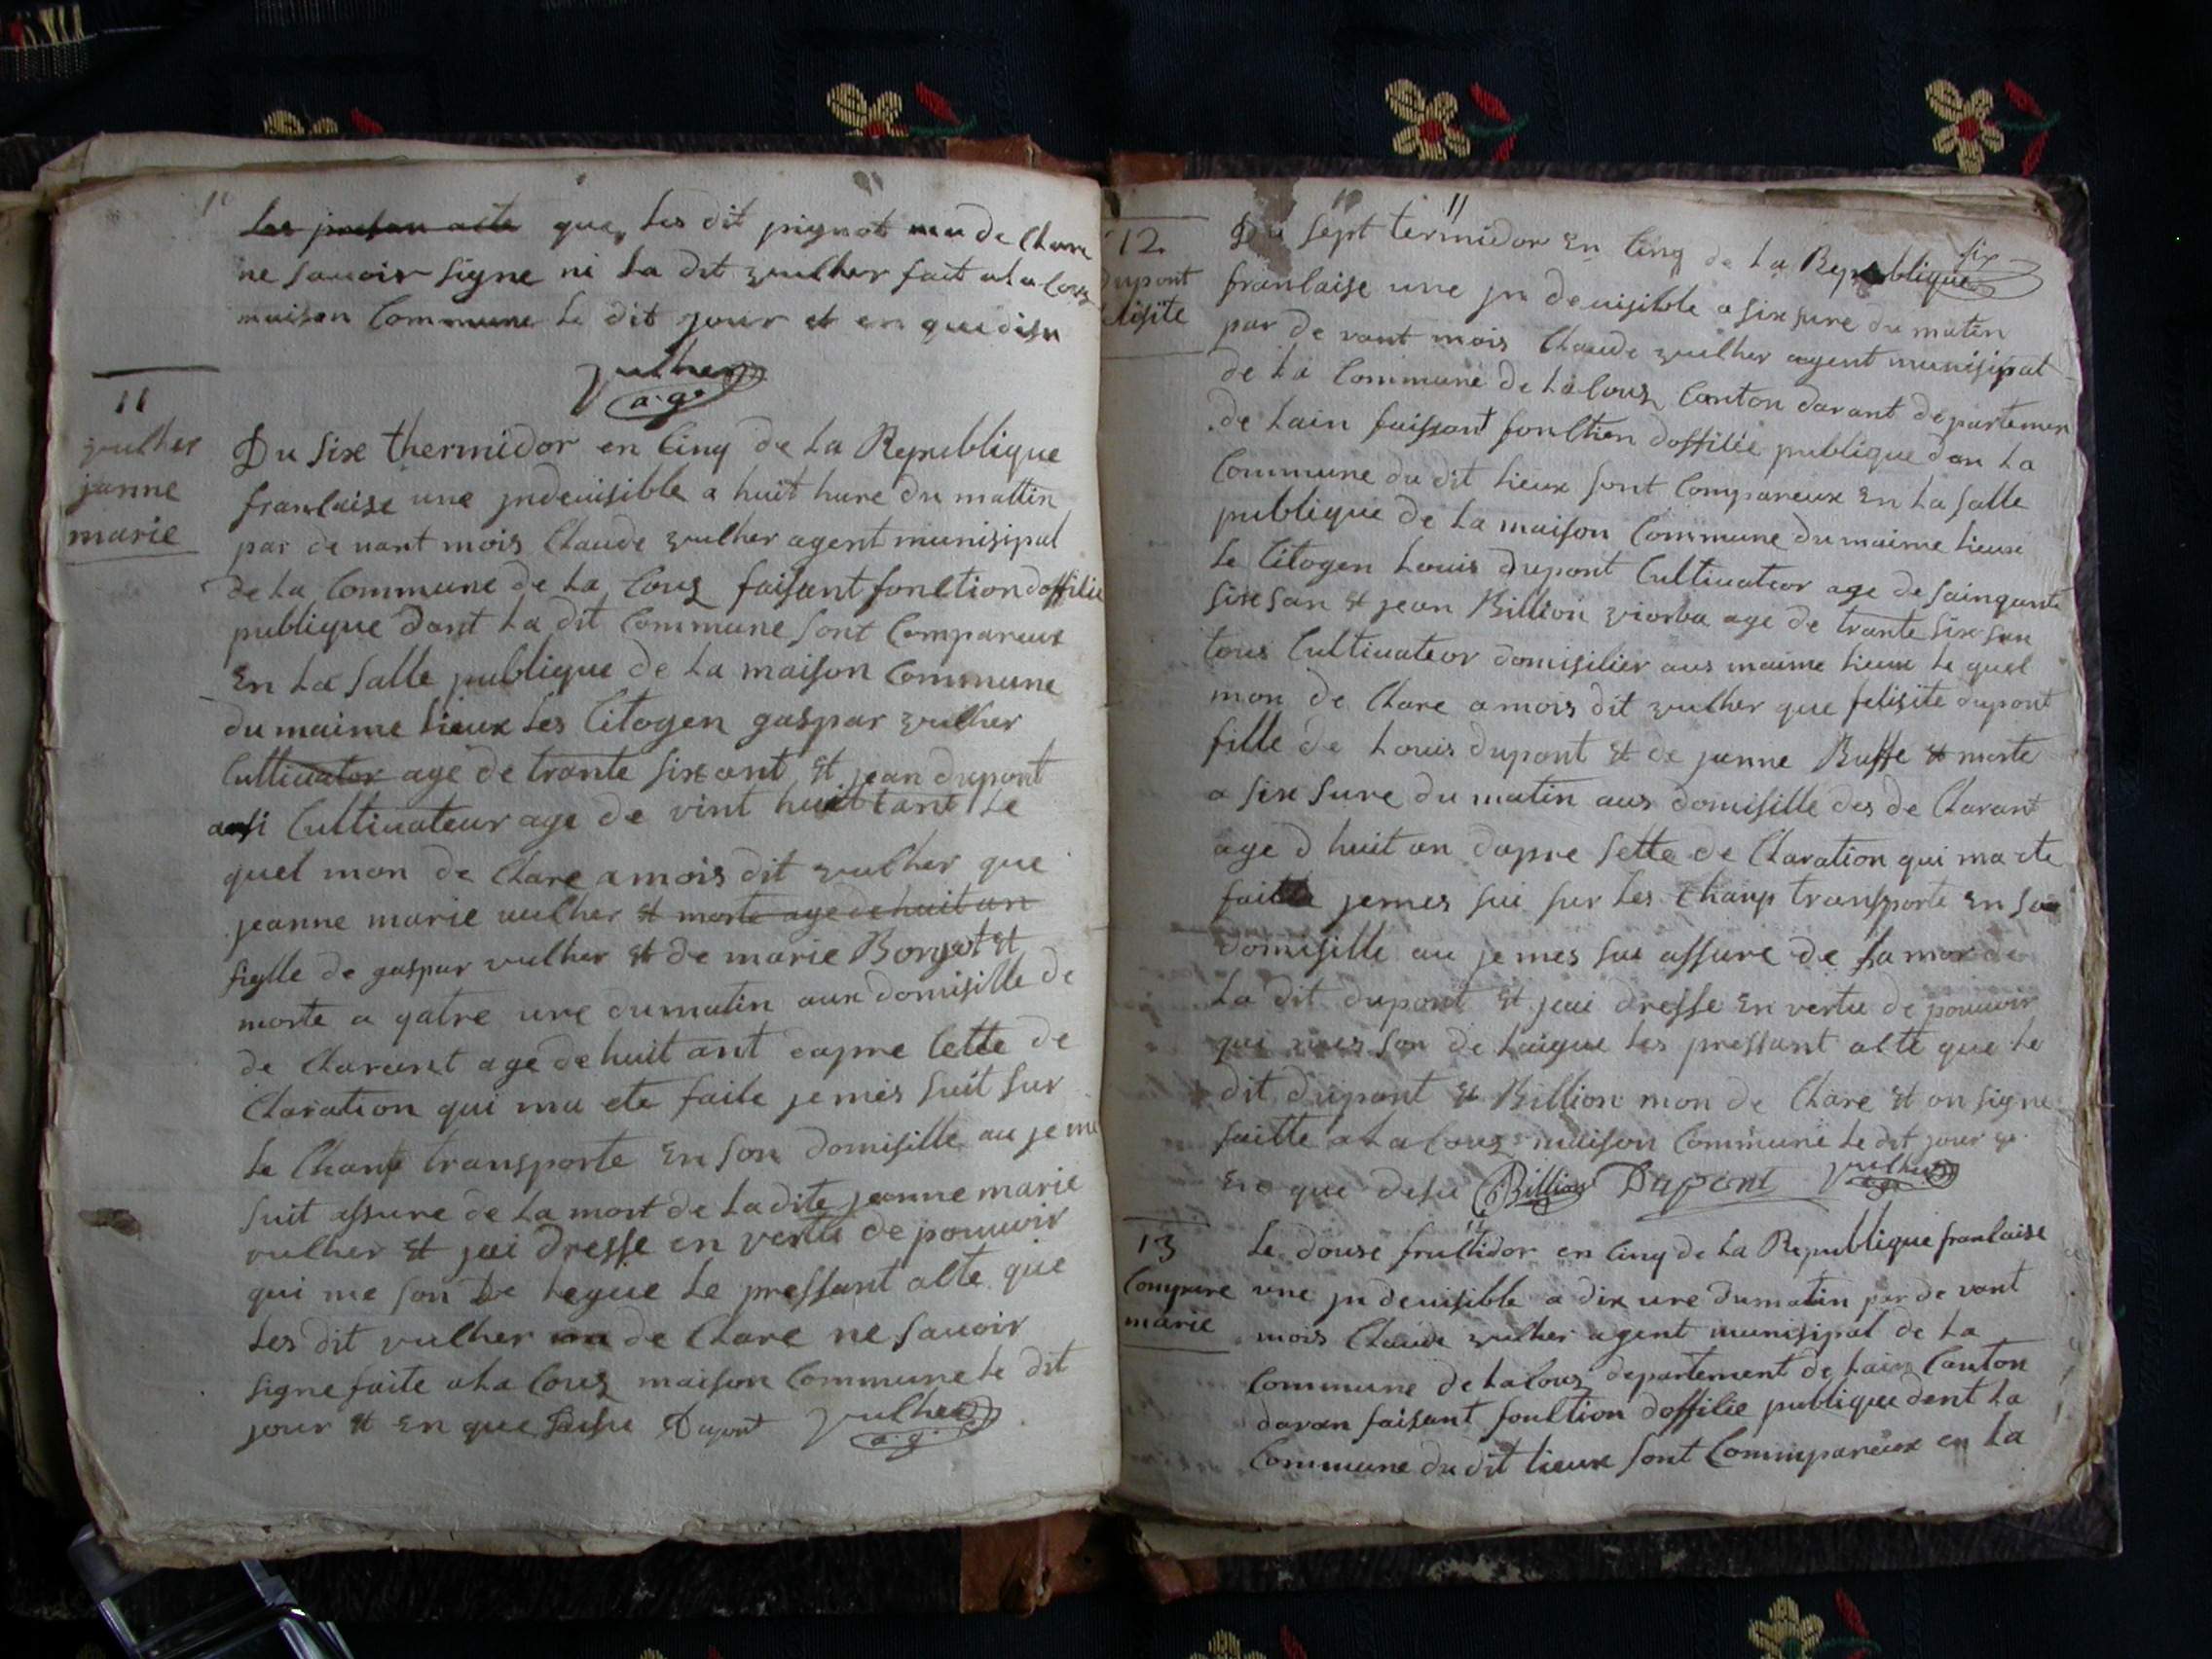 Les presan acte que Les dit pignot ma de Clare
ne savoir signe ni La dit vulher fait a La Coux
maison Commune Le dit jour et en que disu
vulher
a.g.
11
vulher
janne
marie
Du six thermidor en Cinq de La Republique
franCaise une jndeuisible a huit hure du mattin
par de vant mois Claude vulher agent munisipal
de La Commune de La Coux faisant fonCtion doffiCie
publique dant La dit Commune sont Compareux
En La salle publique de La maison Commune
du maime Lieux Les Citogen gaspar vulher
Cultivator age de trante six ant et jean dupont
ausi Cultivateur age de vint huit tant Le
quel mon de Clare a mois dit vulher que
jeanne marie vulher et morte age de huit an
fiylle de gaspar vulher et de marie Borget et
morte a qatre ure du matin aux domisille de
de Clarant age de huit ant dapre Cette de
Claration qui ma ete faite je mes suit sur
Le Chanp transporte En son domisille au je me
suit assure de La mort de La dite jeanne marie
vulher et jai dresse en vertu de pouvoir
qui me son De Legue Le pressant aCte que
Les dit vulher de Clare ne savoir
signe faite a La Coux maison Commune Le dit
jour et En que desu Dupont vulher
a.g.
11
six
12
dupont
felisite
Du sept termidor En Cinq de La Republique
franCaise une jn deuisible a six sure du matin
par de vant mois Claude vulher agent munisipal
de La Commune de La Coux Canton darant departemen
de Lain faissant fonCtion doffiCie publique dan La
Commune du dit Lieux sont Compareux En La salle
publique de La maison Commune du maime Lieux
Le Citogen Louis dupont Cultivateor age de sainquante
six san et jean Billion viorba age de trante six san
tous Cultivateor domisilier aus maime Lieux Le quel
mon de Clare a mois dit vulher que felisite dupont
fille de Louis dupont et de janne Buffe et morte
a six sure du matin aus domisille des de Clarant
age d huit an dapre sette de Claration qui ma ete
faitte jemes sui sur Les Chanp transporte En son
domisille au je mes sui assure de La mor de
La dit dupont et jai dresse En vertu de pouvoir
qui mes son de Laigue Les pressant aCte que Le
dit dupont et Billion mon de Clare et on signe
faitte a La Coux maison Commune Le dit jour
En que desu Billion Dupont vulher
13
Compare
marie
Le douse fruCtidor en Cinq de La Republique franCaise
une jn deuisible a dix ure du matin par de vant
mois Claude vulher agent munisipal de La
Commune de La Coux departement de Lain Canton
daran faisant fonCtion doffiCie publique dent La
Commune du dit Lieux sont Commpareux en La